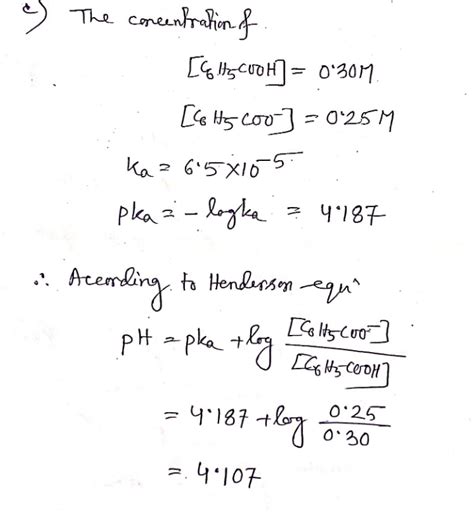 c) The concentration of
[C6H5COOH] = 0.30M
[C6H5COO-] = 0.25M
Ka = 6.5×10-5
pKa = - logka = 4.187
∴ According to Henderson equn
pH = pka + log [C6H5COO-] / [C6H5COOH]
= 4.187 + log 0.25 / 0.30
= 4.107